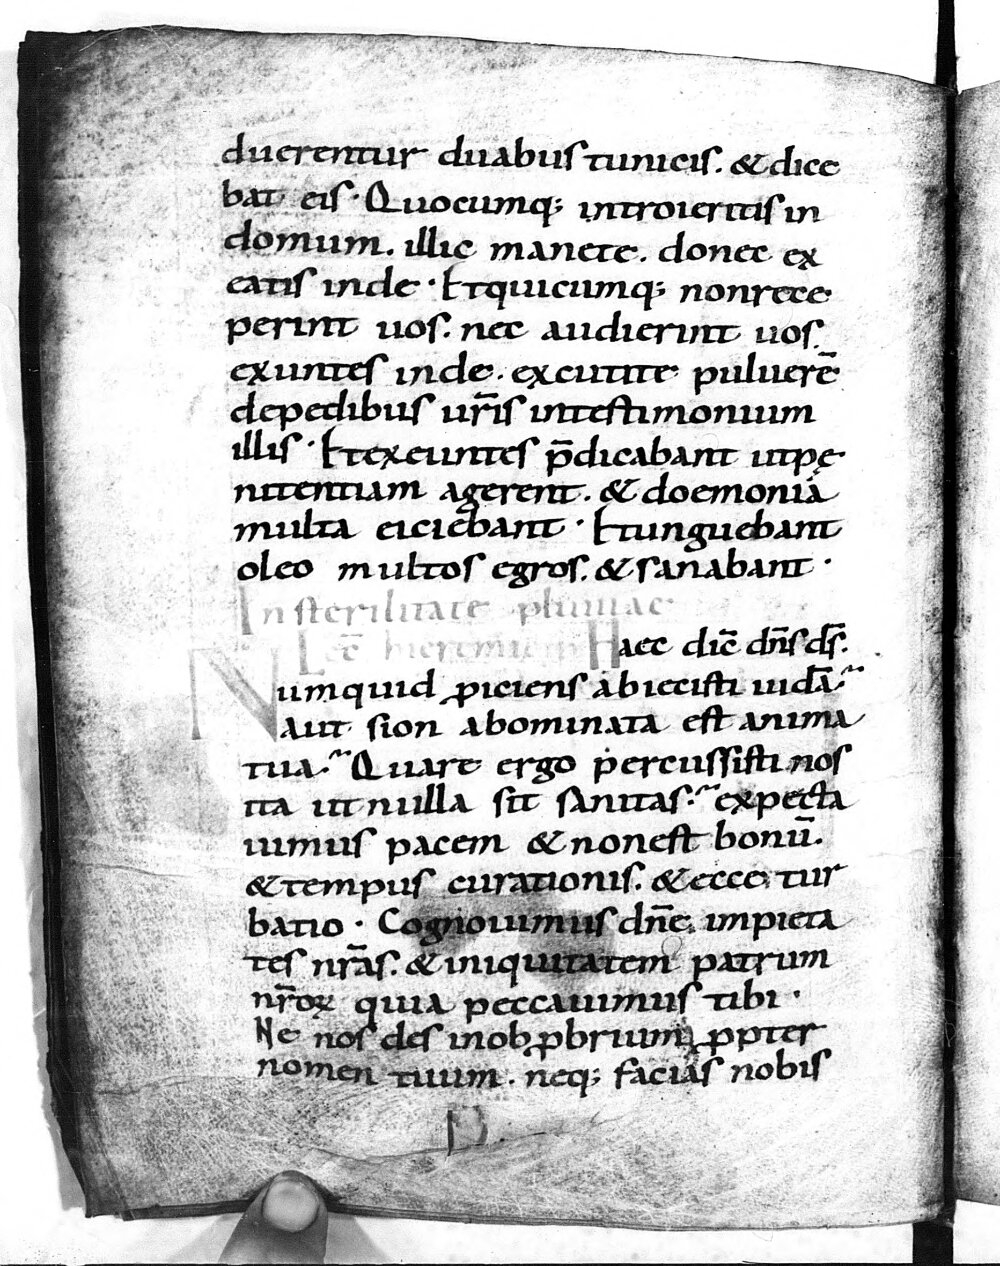 duerentur duabus tunicis. & dice
bat eis · Quocumq; introieritis in
domum. illic manete. donec ex
eatis inde · Et quicumq; non rece
perint uos. nec audierint uos.
exuntes inde. excutite puluerē
de pedibus ur̄is in testimonium
illis · Et exeuntes p̄dicabant ut pę
nitentiam agerent. & doemonia
multa eiciebant · Et unguebant
oleo multos egros. & sanabant ·
In sterilitate pluuiae
Lec̄ hieremie Haec dic̄ dn̄s ds̄.
Numquid proiciens abiecisti iudā.
Aut sion abominata est anima
tua. Quare ergo percussisti nos
ita ut nulla sit sanitas. expecta
uimus pacem & non est bonū.
& tempus curationis. & ecce tur
batio · Cognouimus dn̄e impieta
tes nr̄as. & iniquitatem patrum
nr̄oꝝ quia peccauimus tibi ·
Ne nos des in obꝓbrium ꝓpter
nomen tuum. neq; facias nobis